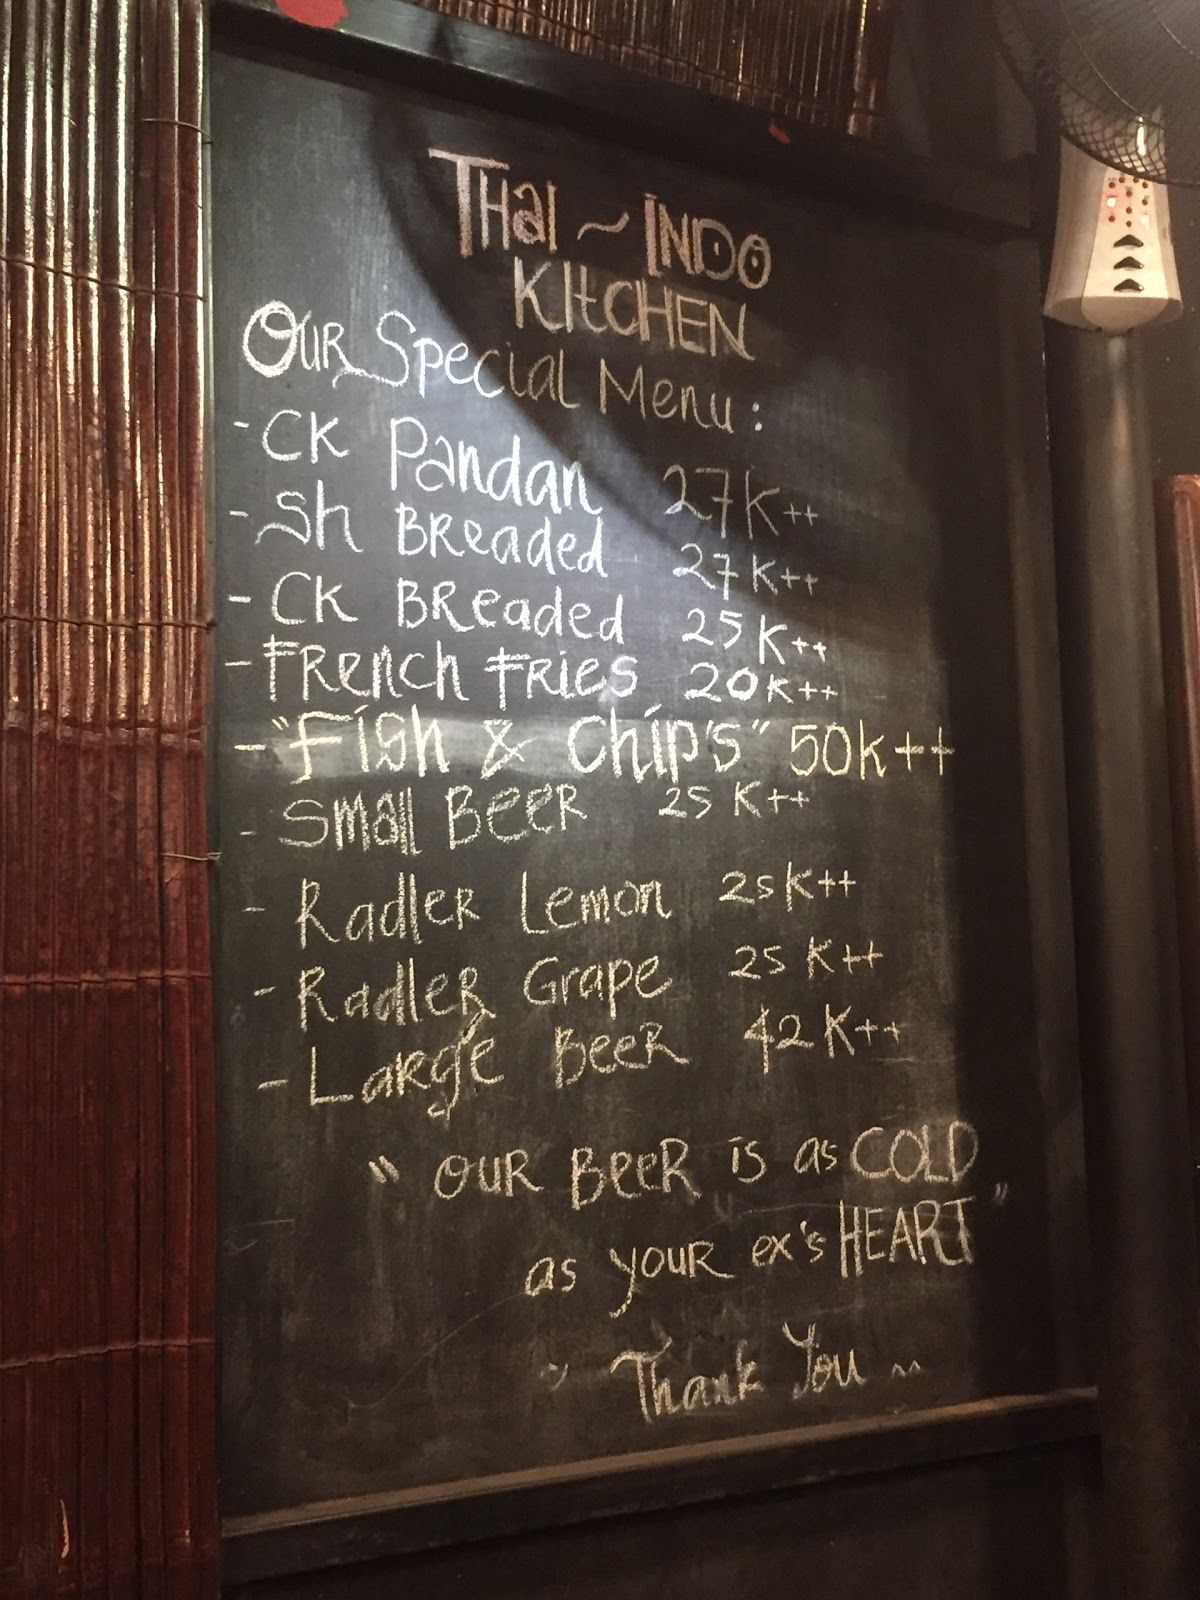 THAI ~ INDO
KITCHEN
OUR Special Menu :
- CK Pandan 27K++
- Sh BReaded 27K++
- CK BReaded 25K++
- FRench FRies 20K++
- "Fish & Chip's" 50k++
- Small BeeR 25K++
- RadleR Lemon 25K++
- RadleR Grape 25K++
- LaRge BeeR 42K++
" OUR BeeR is as COLD
as youR ex's HEART "
~ Thank You ~